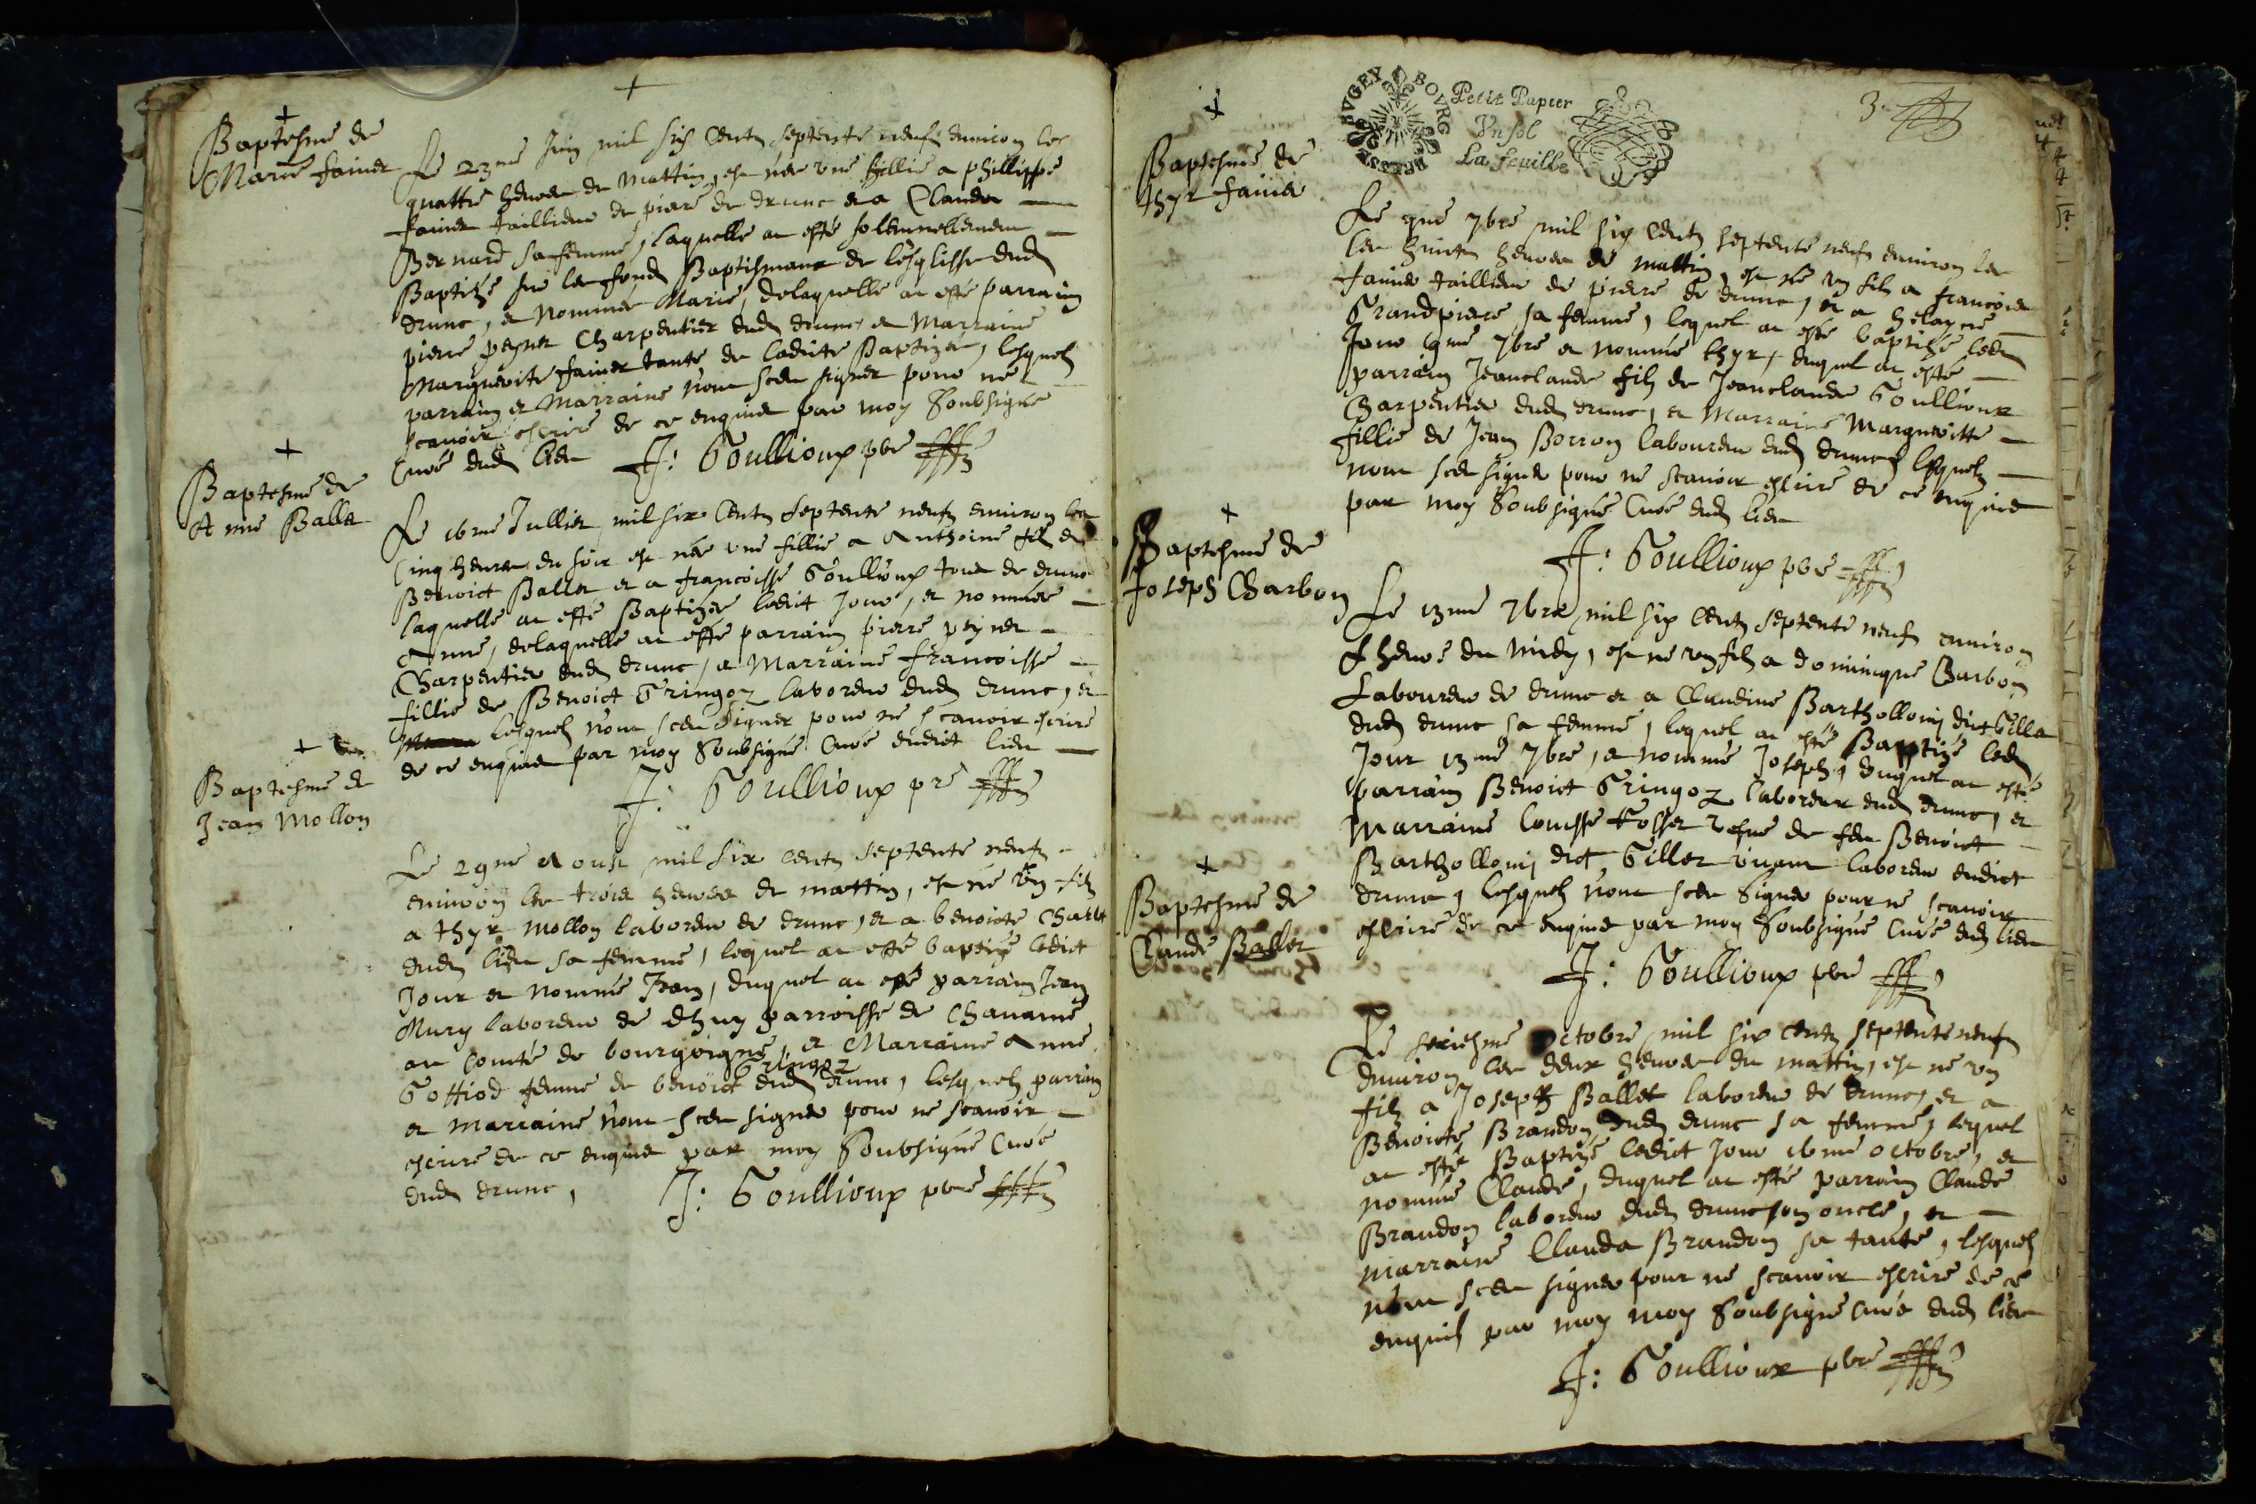 Baptesme de
Marie Faivier
Le 23me Juin mil six Centz septente neufz environ les
quattre heures de Mattin, est née une fillie a phillippe
tallieur de piere de drunc et a Clauda
Bernard sa femme, laquelle at esté solemnellement
Baptizée sur les fondz Baptismaux de lesglisse dud
drunc, et Nommée Marie, delaquelle at esté parrain
piere Charpentier dud drunc et Marraine
Marguerite tante de ladicte Baptizée, lesquelz
parrain et Marraine nont sceu signer pour ne
scavoir escrire de ce enquis par moy Soubsigné
Curé dud lieu J: Goullioux pbre
Baptesme de
Anne Ballet
Le 16me Jullier mil six Centz septente neufz environ les
Cinq heures du soir est née une fillie a Anthoine filz de
Benoict Ballet et a francoisse Goullioux tous de drunc
laquelle at esté Baptizée ledict Jour, et nommée
Anne, delaquelle at esté parrain pierre
Charpentier dud drunc, et Marraine francoisse
fillie de Benoict Gringoz laboreur dud drunc, et
lesquelz nont sceu signer pour ne scavoir escrire
de ce enquis par moy Soubsigné Curé dudict lieu
J: Goullioux pre
Baptesme de
Jean Mollon
Le 29me Aoust mil six Centz septente neufz
environ les trois heures de mattin, est né un filz
a thyr Mollon laboreur de drunc, et a benoicte
dud lieu sa femme, lequel at esté baptizé ledict
Jour et nommé Jean, duquel at esté parrain Jean
Mury laboreur de parroisse de
au Comté de bourgoigne, et Marraine Anne
Gringoz
Gottiod femme de benoict dud drunc, lesquelz parrain
et marraine nont sceu signer pour ne scavoir
escrire de ce enquis par moy Soubsigné Curé
dud drunc, J: Goullioux pbre
BVGEY BOVRG BRESSE
Petit Papier
Vn sol
La feuille
3.
Baptesme de
thyr
Le 9me 7bre mil six Centz septente neufz environ les
les huict heures de mattin, est né un filz a francois
tallieur de pierre de drunc, et a helayne
Grandpiere sa femme, lequel at esté baptizé led
Jour 9me 7bre et nommé thyr, duquel at esté
parrain Jeanclaude filz de Jeanclaude Goullioux
Charpentier dud drunc, et Marraine Margueritte
fillie de Jean Borron laboureur dud drunc lesquelz
nont sceu signer pour ne scavoir escrire de ce enquis
par moy Soubsigné Curé dud lieu
J: Goullioux pbre
Baptesme de
Joseph Charbon
Le 13me 7bre mil six Centz septente neufz environ
heure du midy, est né un filz a dominique Charbon
Laboureur de drunc et a Claudine Barthollomi dict Gillet
dud drunc sa femme, lequel at esté Baptizé led
Jour 13me 7bre, et nommé Joseph, duquel at esté
parrain Benoict Gringoz laboreur dud drunc, et
Marraine Louisse vefve de feu Benoict
Barthollomi dict Gillet vivant laboreur dudict
drunc, lesquelz nont sceu Signer pour ne scavoir
escrire de ce enquis par moy Soubsigné Curé dud lieu
J: Goullioux pbre
Baptesme de
Claude Ballet
Le seziesme Octobre mil six Centz septente neufz
Environ les deux heures du mattin, est né un
filz a Joseph Ballet laboreur de drunc, et a
Benoicte Brandon dud drunc sa femme, lequel
at esté Baptizé ledict Jour 16me octobre, et
nommé Claude, duquel at esté parrain Claude
Brandon laboreur dud drunc son oncle, et
marraine Clauda Brandon sa tante, lesquelz
nont sceu signer pour ne scavoir escrire de ce
enquis par moy moy Soubsigné Curé dud lieu
J: Goullioux pbre